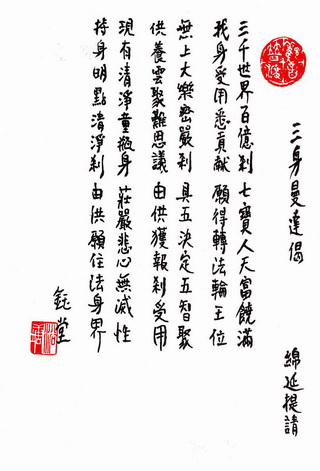 三身曼達偈
綿延提請
三千世界百億剎 七寶人天富饒滿
我身受用悉貢獻 願得轉法輪王位
無上大樂密嚴剎 具五決定五智聚
供養雲聚難思議 由供獲報剎受用
現有清淨童瓶身 莊嚴悲心無滅性
持身明點清淨剎 由供願住法身界
鈺堂